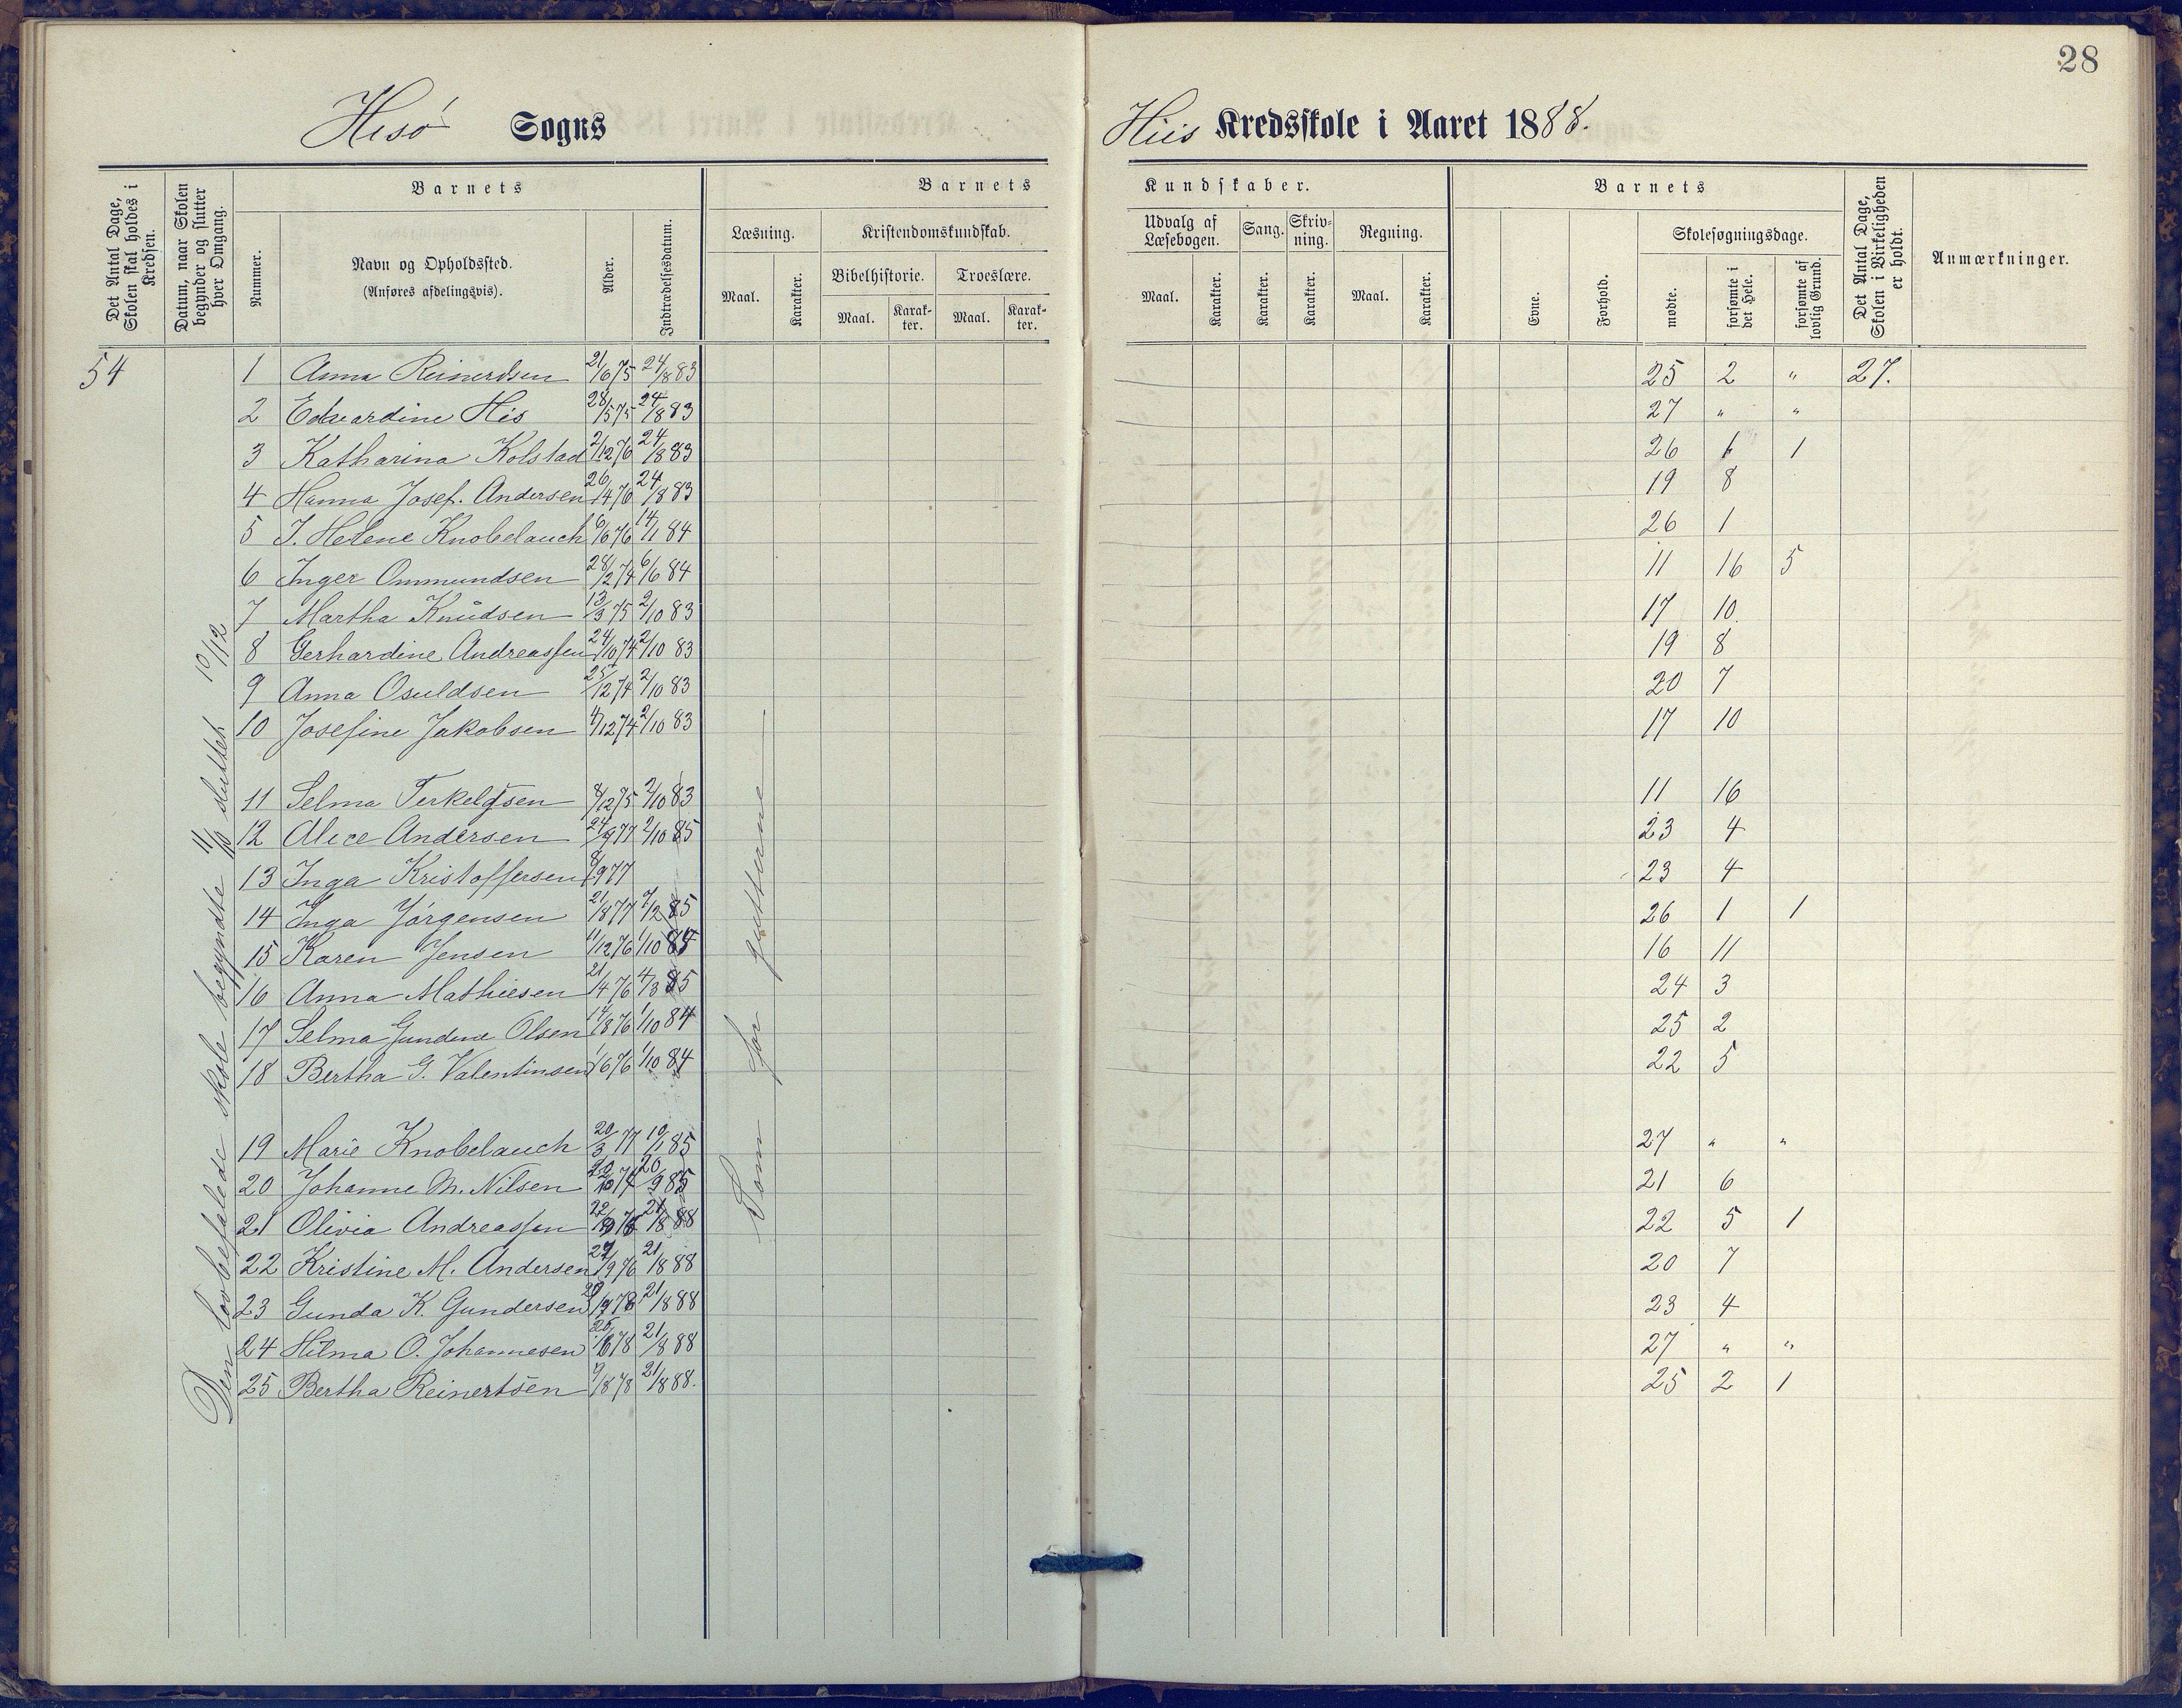 28
Hisö Sogns
Hiis Kredsskole i Aaret 1888.
Det Antal Dage, Skolen skal holdes i Kredsen.
Datum, naar Skolen begynder og slutter hver Omgang.
Barnets
Nummer.
Navn og Opholdssted.
(Anføres afdelingsvis).
Alder.
Indtrædelsesdatum.
Barnets
Læsning.
Maal.
Karakter.
Kristendomskundskab.
Bibelhistorie.
Maal.
Karak-
ter.
Troeslære.
Maal.
Karak-
ter.
Kundskaber.
Udvalg af
Læsebogen.
Maal.
Karakter.
Sang.
Karakter.
Skriv-
ning.
Karakter.
Regning.
Maal.
Karakter.
Barnets
Evne.
Forhold.
Skolesøgningsdage.
mødte.
forsømte i det Hele.
forsømte af lovlig Grund.
Det Antal Dage, Skolen i Virkeligheden er holdt.
Anmærkninger.
54
Den lovbefalede skole begyndte 11/10 sluttet 10/12
Som for gutterne
1 Anna Reinerdsen 21/6 75 24/8 83 25 2 " 27.
2 Edvardine His 28/5 75 24/8 83 27 " "
3 Katharina Kolstad 2/12 76 24/8 83 26 1 1
4 Hanna Josef. Andersen 26/4 76 24/8 83 19 8
5 J. Helene Knobelauch 6/6 76 14/1 84 26 1
6 Inger Ommundsen 28/2 74 6/6 84 11 16 5
7 Martha Knudsen 13/3 75 2/10 83 17 10
8 Gerhardine Andreassen 24/10 74 2/10 83 19 8
9 Anna Osuldsen 25/12 74 2/10 83 20 7
10 Josefine Jakobsen 4/12 74 2/10 83 17 10
11 Selma Terkelsen 8/12 75 2/10 83 11 16
12 Alice Andersen 24/9 77 2/10 85 23 4
13 Inga Kristoffersen 8/9 77 23 4
14 Inga Jörgensen 21/8 77 2/2 85 26 1 1
15 Karen Jensen 11/12 76 1/10 84 16 11
16 Anna Mathiesen 21/4 76 4/3 85 24 3
17 Selma Gundine Olsen 14/8 76 1/10 84 25 2
18 Bertha G. Valentinsen 1/6 76 1/10 84 22 5
19 Marie Knobelauch 20/3 77 10/1 85 27 " "
20 Johanne M. Nilsen 20/10 74 20/9 85 21 6
21 Olivia Andreassen 22/10 76 21/8 88 22 5 1
22 Kristine M. Andersen 27/9 76 21/8 88 20 7
23 Gunda K. Gundersen 78 21/8 88 23 4
24 Hilma O. Johannesen 26/6 78 21/8 88 27 " "
25 Bertha Reinertsen 9/8 78 21/8 88. 25 2 1